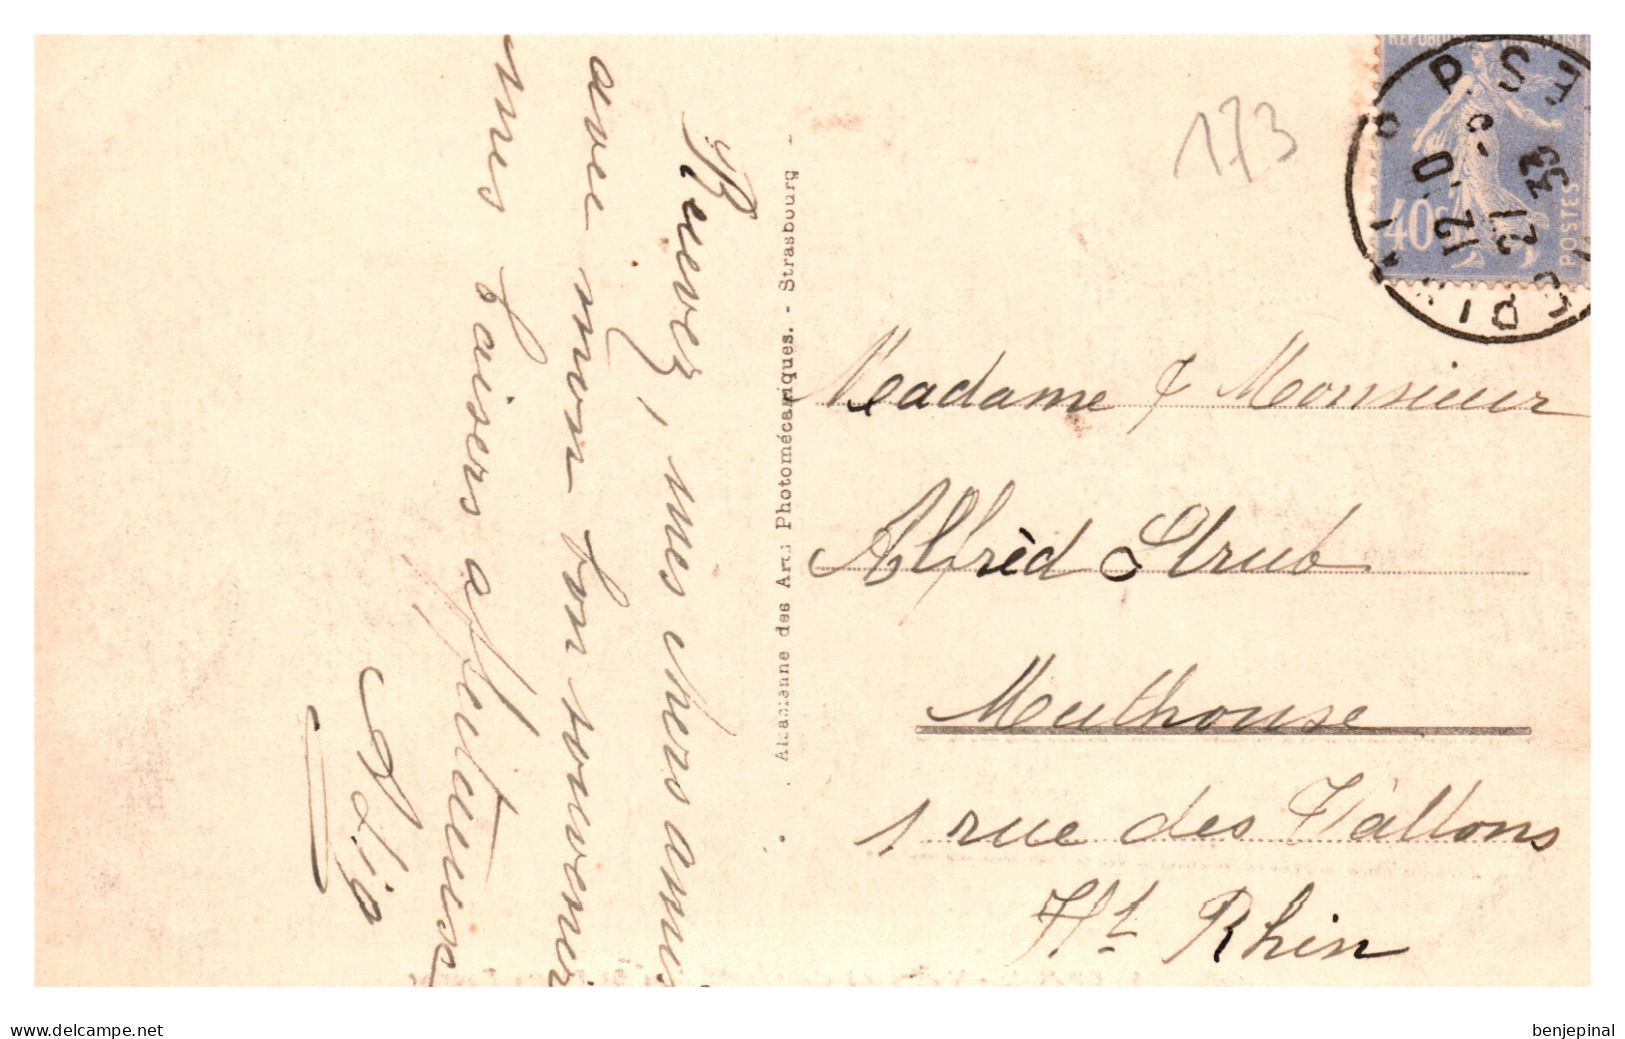 Recevez, mes chers amis
avec mon bon souvenir
mes baisers affectueux
Alsacienne des Arts Photomécaniques. - Strasbourg
173
REPUBLIQUE FRANÇAISE
40c
POSTES
12·10
21 -9 33
Madame & Monsieur
Alfrèd Strub
Mulhouse
1 rue des Vallons
Ht Rhin
www.delcampe.net
benjepinal